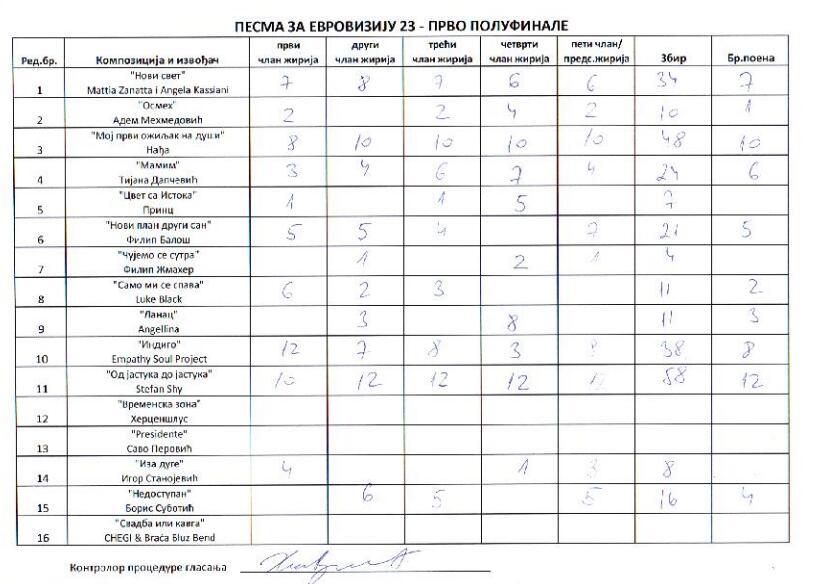 ПЕСМА ЗА ЕВРОВИЗИЈУ 23 - ПРВО ПОЛУФИНАЛЕ
Ред.бр. Композиција и извођач први члан жирија други члан жирија трећи члан жирија четврти члан жирија пети члан/ предс.жирија Збир Бр.поена
1 "Нови свет" Mattia Zanatta i Angela Kassiani 7 8 7 6 6 34 7
2 "Осмех" Адем Мехмедовић 2 2 4 2 10 1
3 "Мој први ожиљак на души" Нађа 8 10 10 10 10 48 10
4 "Мамим" Тијана Дапчевић 3 4 6 7 4 24 6
5 "Цвет са Истока" Принц 1 1 5 7
6 "Нови план други сан" Филип Балош 5 5 4 7 21 5
7 "Чујемо се сутра" Филип Жмахер 1 2 1 4
8 "Само ми се спава" Luke Black 6 2 3 11 2
9 "Ланац" Angellina 3 8 11 3
10 "Индиго" Empathy Soul Project 12 7 8 3 8 38 8
11 "Од јастука до јастука" Stefan Shy 10 12 12 12 12 58 12
12 "Временска зона" Херценшлус
13 "Presidente" Саво Перовић
14 "Иза дуге" Игор Станојевић 4 1 3 8
15 "Недоступан" Борис Суботић 6 5 5 16 4
16 "Свадба или кавга" CHEGI & Braća Bluz Bend
Контролор процедуре гласања